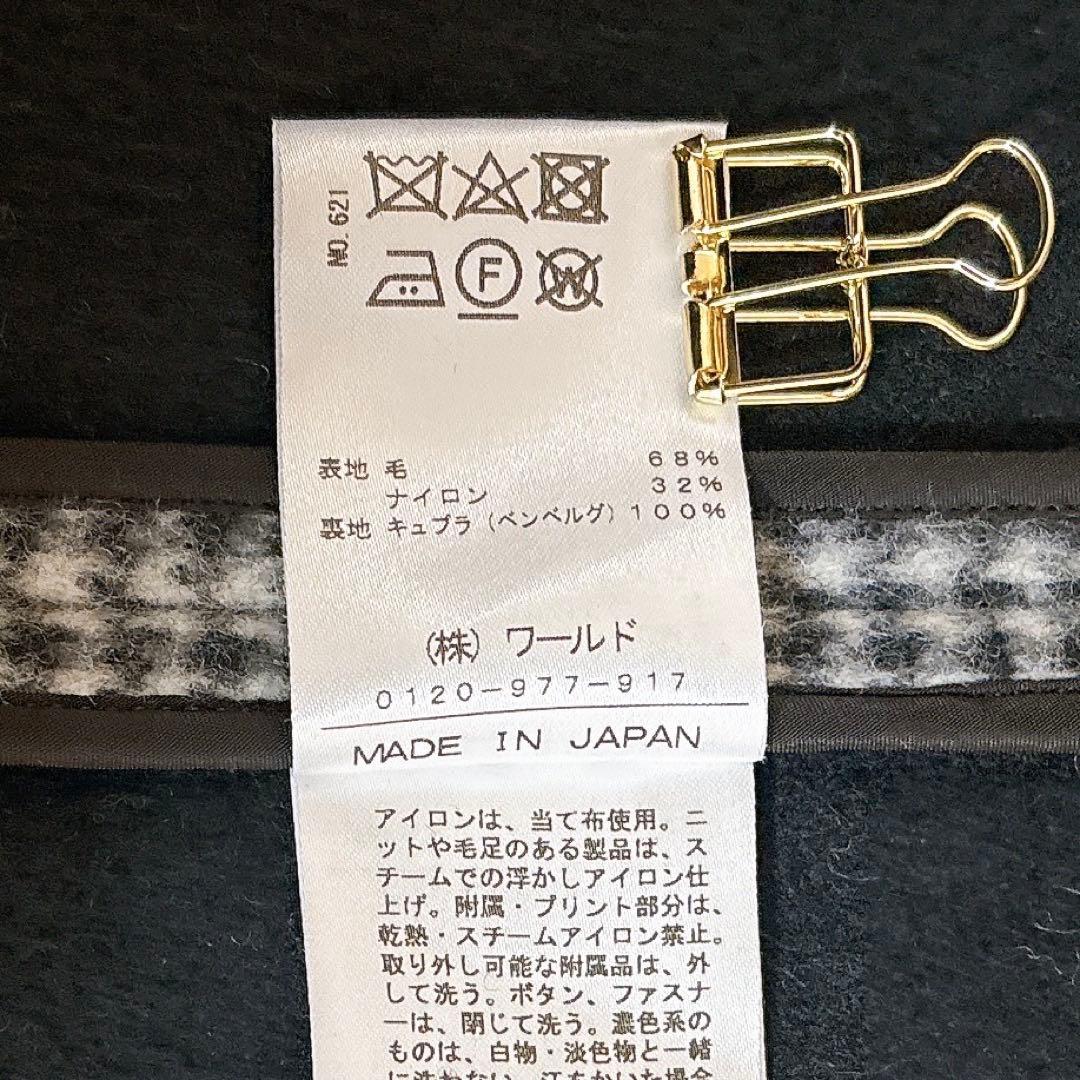 NO. 621
F
W
表地 毛 68%
ナイロン 32%
裏地 キュプラ (ベンベルグ) 100%
(株) ワールド
0120-977-917
MADE IN JAPAN
アイロンは、当て布使用。ニ
ットや毛足のある製品は、ス
チームでの浮かしアイロン仕
上げ。附属・プリント部分は、
乾熱・スチームアイロン禁止。
取り外し可能な附属品は、外
して洗う。ボタン、ファスナ
ーは、閉じて洗う。濃色系の
ものは、白物・淡色物と一緒
に洗わない。汗をかいた場合